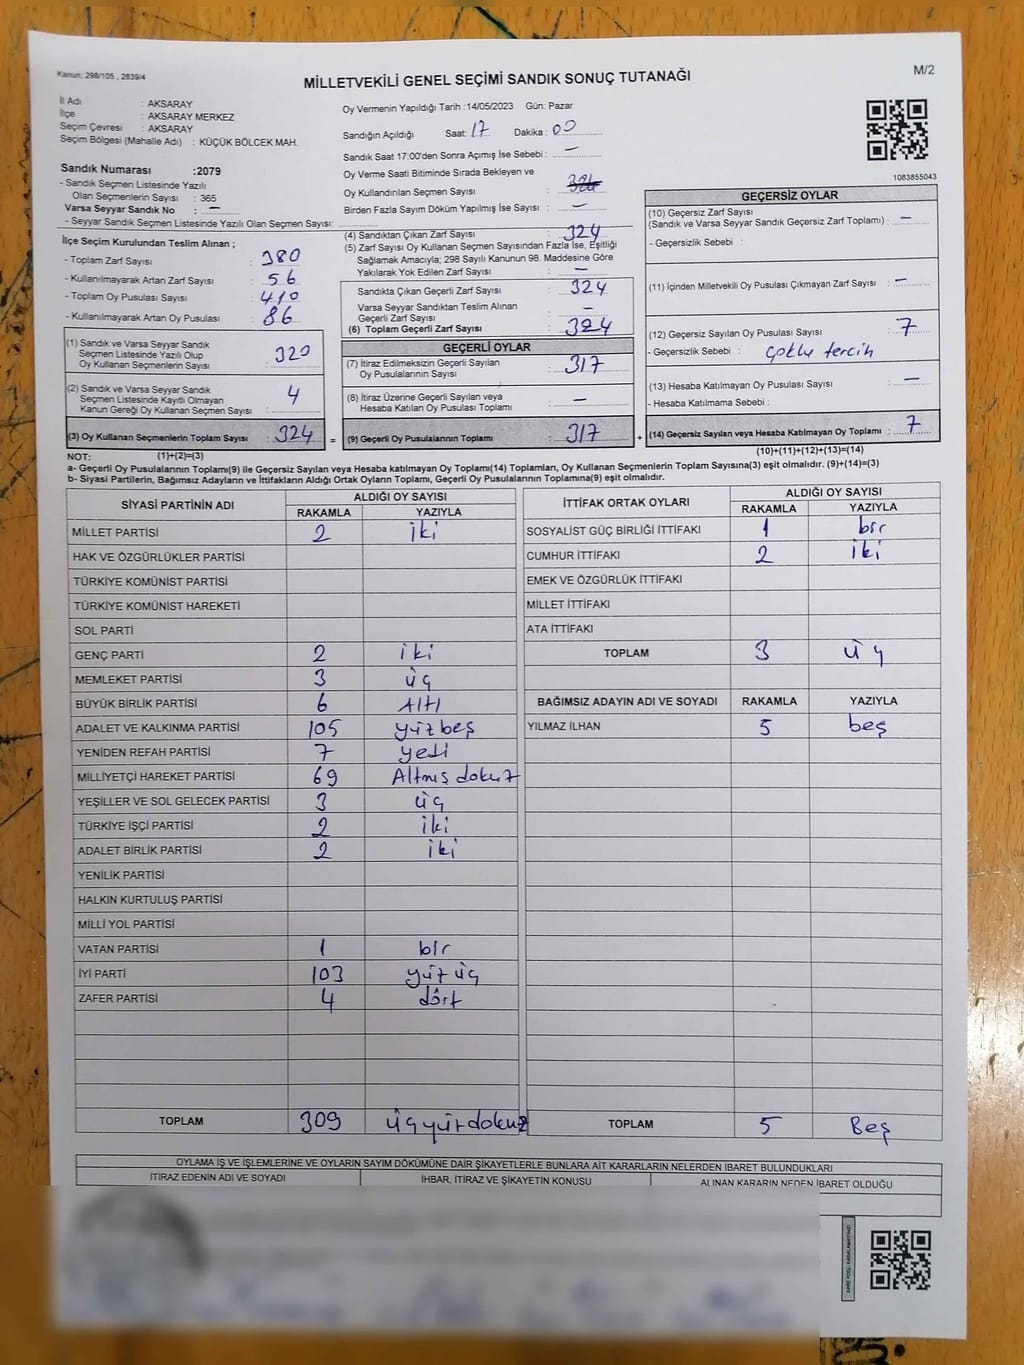 Kanun: 298/105 , 2839/4
M/2
MİLLETVEKİLİ GENEL SEÇİMİ SANDIK SONUÇ TUTANAĞI
İl Adı : AKSARAY
İlçe : AKSARAY MERKEZ
Seçim Çevresi : AKSARAY
Seçim Bölgesi (Mahalle Adı) : KÜÇÜK BÖLCEK MAH.
Sandık Numarası :2079
- Sandık Seçmen Listesinde Yazılı
Olan Seçmenlerin Sayısı : 365
Varsa Seyyar Sandık No : —
- Seyyar Sandık Seçmen Listesinde Yazılı Olan Seçmen Sayısı:
İlçe Seçim Kurulundan Teslim Alınan ;
- Toplam Zarf Sayısı : 380
- Kullanılmayarak Artan Zarf Sayısı : 56
- Toplam Oy Pusulası Sayısı : 410
- Kullanılmayarak Artan Oy Pusulası : 86
(1) Sandık ve Varsa Seyyar Sandık
Seçmen Listesinde Yazılı Olup
Oy Kullanan Seçmenlerin Sayısı : 320
(2) Sandık ve Varsa Seyyar Sandık
Seçmen Listesinde Kayıtlı Olmayan
Kanun Gereği Oy Kullanan Seçmen Sayısı : 4
(3) Oy Kullanan Seçmenlerin Toplam Sayısı : 324 =
Oy Vermenin Yapıldığı Tarih :14/05/2023 Gün: Pazar
Sandığın Açıldığı Saat: 17 Dakika : 00
Sandık Saat 17:00'den Sonra Açımış İse Sebebi : —
Oy Verme Saati Bitiminde Sırada Bekleyen ve
Oy Kullandırılan Seçmen Sayısı : 324
Birden Fazla Sayım Döküm Yapılmış İse Sayısı : —
(4) Sandıktan Çıkan Zarf Sayısı : 324
(5) Zarf Sayısı Oy Kullanan Seçmen Sayısından Fazla İse, Eşitliği
Sağlamak Amacıyla; 298 Sayılı Kanunun 98. Maddesine Göre
Yakılarak Yok Edilen Zarf Sayısı : —
Sandıkta Çıkan Geçerli Zarf Sayısı : 324
Varsa Seyyar Sandıktan Teslim Alınan
Geçerli Zarf Sayısı : —
(6) Toplam Geçerli Zarf Sayısı : 324
GEÇERLİ OYLAR
(7) İtiraz Edilmeksizin Geçerli Sayılan
Oy Pusulalarının Sayısı : 317
(8) İtiraz Üzerine Geçerli Sayılan veya
Hesaba Katılan Oy Pusulası Toplamı : —
(9) Geçerli Oy Pusulalarının Toplamı : 317 +
1083855043
GEÇERSİZ OYLAR
(10) Geçersiz Zarf Sayısı
(Sandık ve Varsa Seyyar Sandık Geçersiz Zarf Toplamı) : —
- Geçersizlik Sebebi :
(11) İçinden Milletvekili Oy Pusulası Çıkmayan Zarf Sayısı : —
(12) Geçersiz Sayılan Oy Pusulası Sayısı : 7
- Geçersizlik Sebebi : çoklu tercih
(13) Hesaba Katılmayan Oy Pusulası Sayısı : —
- Hesaba Katılmama Sebebi :
(14) Geçersiz Sayılan veya Hesaba Katılmayan Oy Toplamı : 7
NOT: (1)+(2)=(3) (10)+(11)+(12)+(13)=(14)
a- Geçerli Oy Pusulalarının Toplamı(9) ile Geçersiz Sayılan veya Hesaba katılmayan Oy Toplamı(14) Toplamları, Oy Kullanan Seçmenlerin Toplam Sayısına(3) eşit olmalıdır. (9)+(14)=(3)
b- Siyasi Partilerin, Bağımsız Adayların ve İttifakların Aldığı Ortak Oyların Toplamı, Geçerli Oy Pusulalarının Toplamına(9) eşit olmalıdır.
SİYASİ PARTİNİN ADI ALDIĞI OY SAYISI
RAKAMLA YAZIYLA
MİLLET PARTİSİ 2 iki
HAK VE ÖZGÜRLÜKLER PARTİSİ
TÜRKİYE KOMÜNİST PARTİSİ
TÜRKİYE KOMÜNİST HAREKETİ
SOL PARTİ
GENÇ PARTİ 2 iki
MEMLEKET PARTİSİ 3 üç
BÜYÜK BİRLİK PARTİSİ 6 Altı
ADALET VE KALKINMA PARTİSİ 105 yüzbeş
YENİDEN REFAH PARTİSİ 7 yedi
MİLLİYETÇİ HAREKET PARTİSİ 69 Altmış dokuz
YEŞİLLER VE SOL GELECEK PARTİSİ 3 üç
TÜRKİYE İŞÇİ PARTİSİ 2 iki
ADALET BİRLİK PARTİSİ 2 iki
YENİLİK PARTİSİ
HALKIN KURTULUŞ PARTİSİ
MİLLİ YOL PARTİSİ
VATAN PARTİSİ 1 bir
İYİ PARTİ 103 yüz üç
ZAFER PARTİSİ 4 dört
TOPLAM 309 üçyüzdokuz
İTTİFAK ORTAK OYLARI ALDIĞI OY SAYISI
RAKAMLA YAZIYLA
SOSYALİST GÜÇ BİRLİĞİ İTTİFAKI 1 bir
CUMHUR İTTİFAKI 2 iki
EMEK VE ÖZGÜRLÜK İTTİFAKI
MİLLET İTTİFAKI
ATA İTTİFAKI
TOPLAM 3 üç
BAĞIMSIZ ADAYIN ADI VE SOYADI RAKAMLA YAZIYLA
YILMAZ İLHAN 5 beş
TOPLAM 5 Beş
OYLAMA İŞ VE İŞLEMLERİNE VE OYLARIN SAYIM DÖKÜMÜNE DAİR ŞİKAYETLERLE BUNLARA AİT KARARLARIN NELERDEN İBARET BULUNDUKLARI
İTİRAZ EDENİN ADI VE SOYADI İHBAR, İTİRAZ VE ŞİKAYETİN KONUSU ALINAN KARARIN NEDEN İBARET OLDUĞU